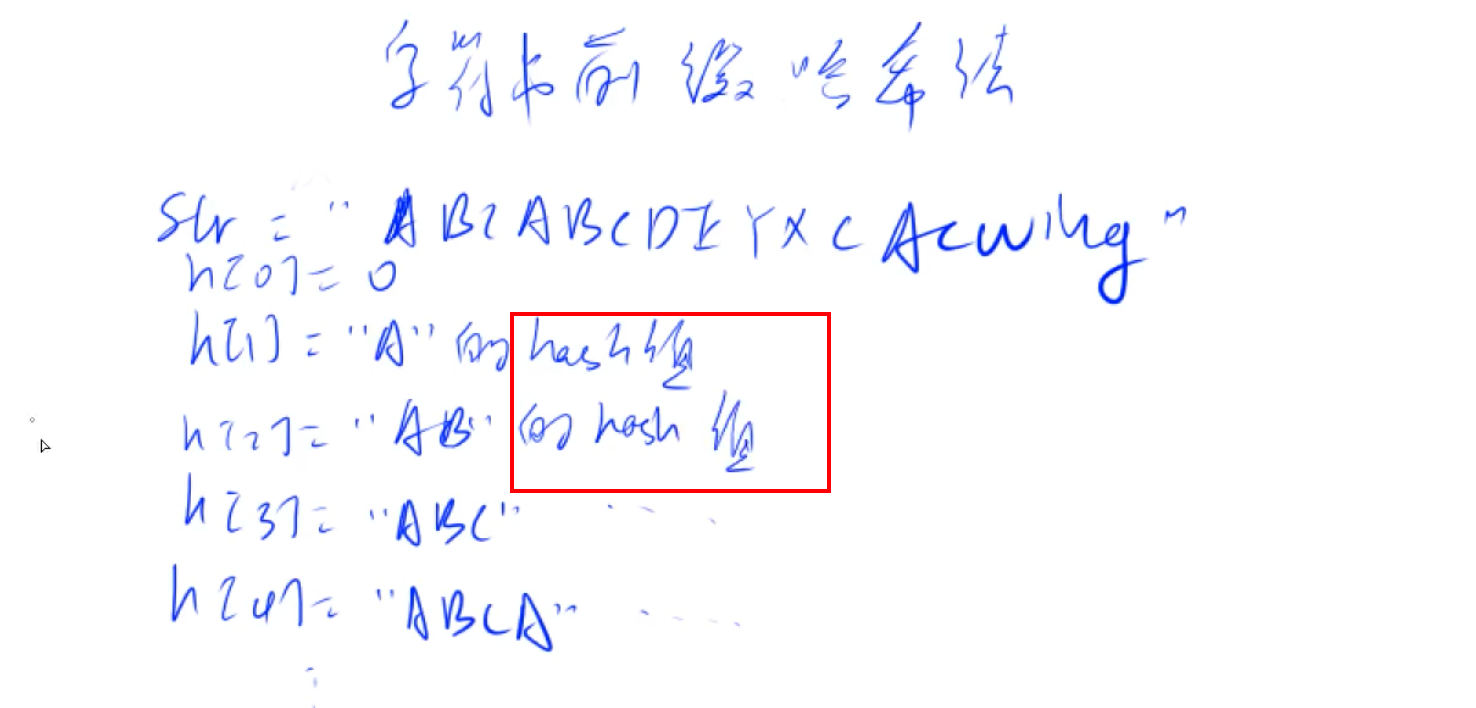 字符串前缀哈希法
Str = "ABCABCDEYXCAcwing"
h[0] = 0
h[1] = "A"的hash值
h[2] = "AB"的hash值
h[3] = "ABC" ....
h[4] = "ABCA" .....